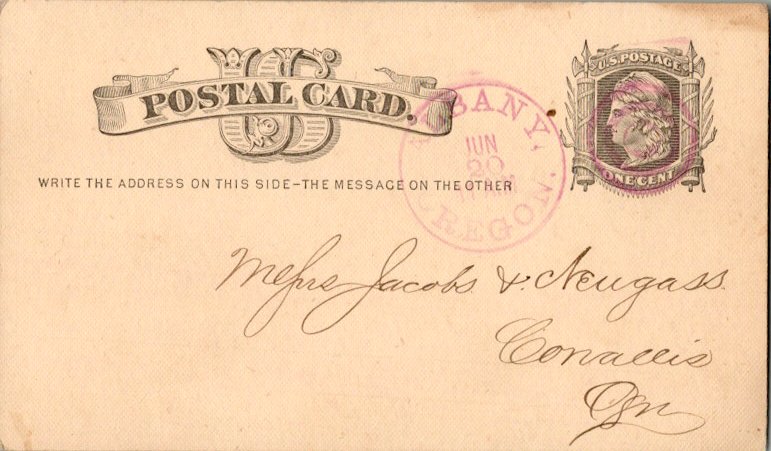 US
POSTAL CARD.
U.S. POSTAGE
ONE CENT
WRITE THE ADDRESS ON THIS SIDE-THE MESSAGE ON THE OTHER
ALBANY,
JUN
20
OREGON.
Messrs Jacobs & Neugass.
Corvallis
Ogn